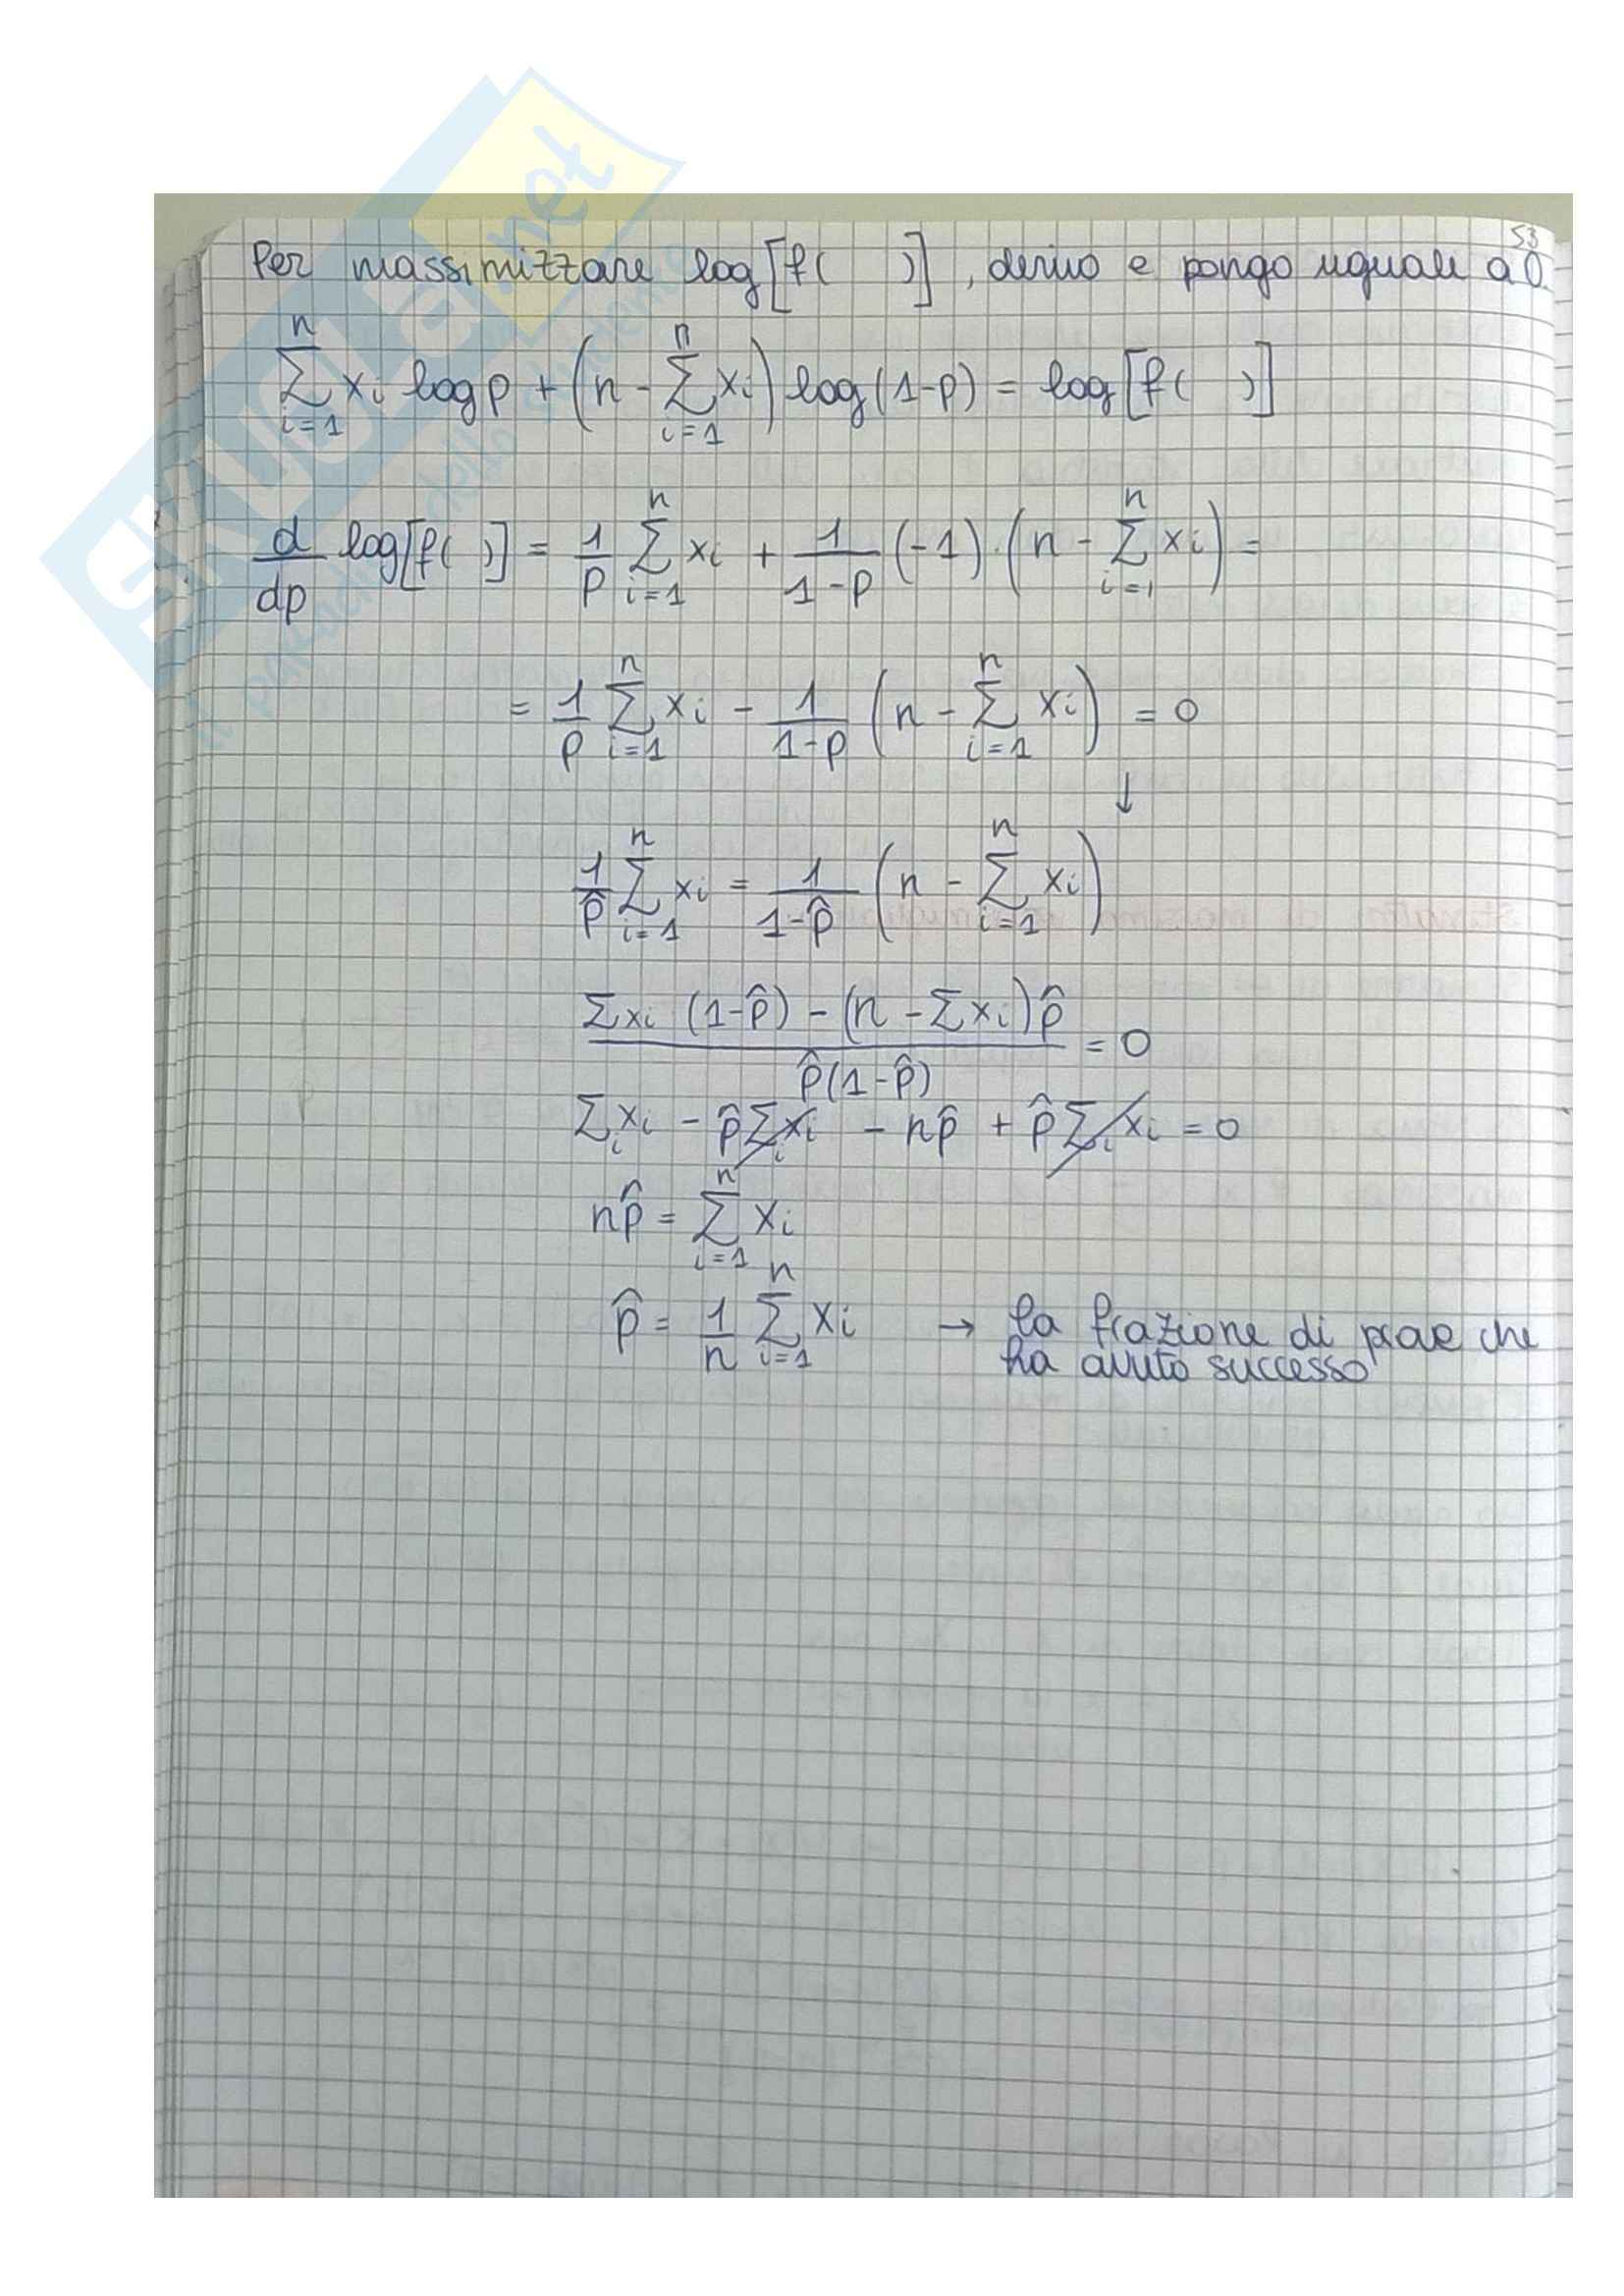 53
Per massimizzare log[f( )], derivo e pongo uguale a 0.
∑_{i=1}^{n} xi log p + (n - ∑_{i=1}^{n} xi) log(1-p) = log[f( )]
d/dp log[f( )] = 1/p ∑_{i=1}^{n} xi + 1/(1-p) (-1)·(n - ∑_{i=1}^{n} xi) =
= 1/p ∑_{i=1}^{n} xi - 1/(1-p) (n - ∑_{i=1}^{n} xi) = 0
↓
1/p̂ ∑_{i=1}^{n} xi = 1/(1-p̂) (n - ∑_{i=1}^{n} xi)
(∑xi (1-p̂) - (n - ∑xi)p̂) / (p̂(1-p̂)) = 0
∑_i xi - p̂∑_i xi - np̂ + p̂∑_i xi = 0
np̂ = ∑_{i=1}^{n} xi
p̂ = 1/n ∑_{i=1}^{n} xi → la frazione di prove che
ha avuto successo
SKUOLA.net